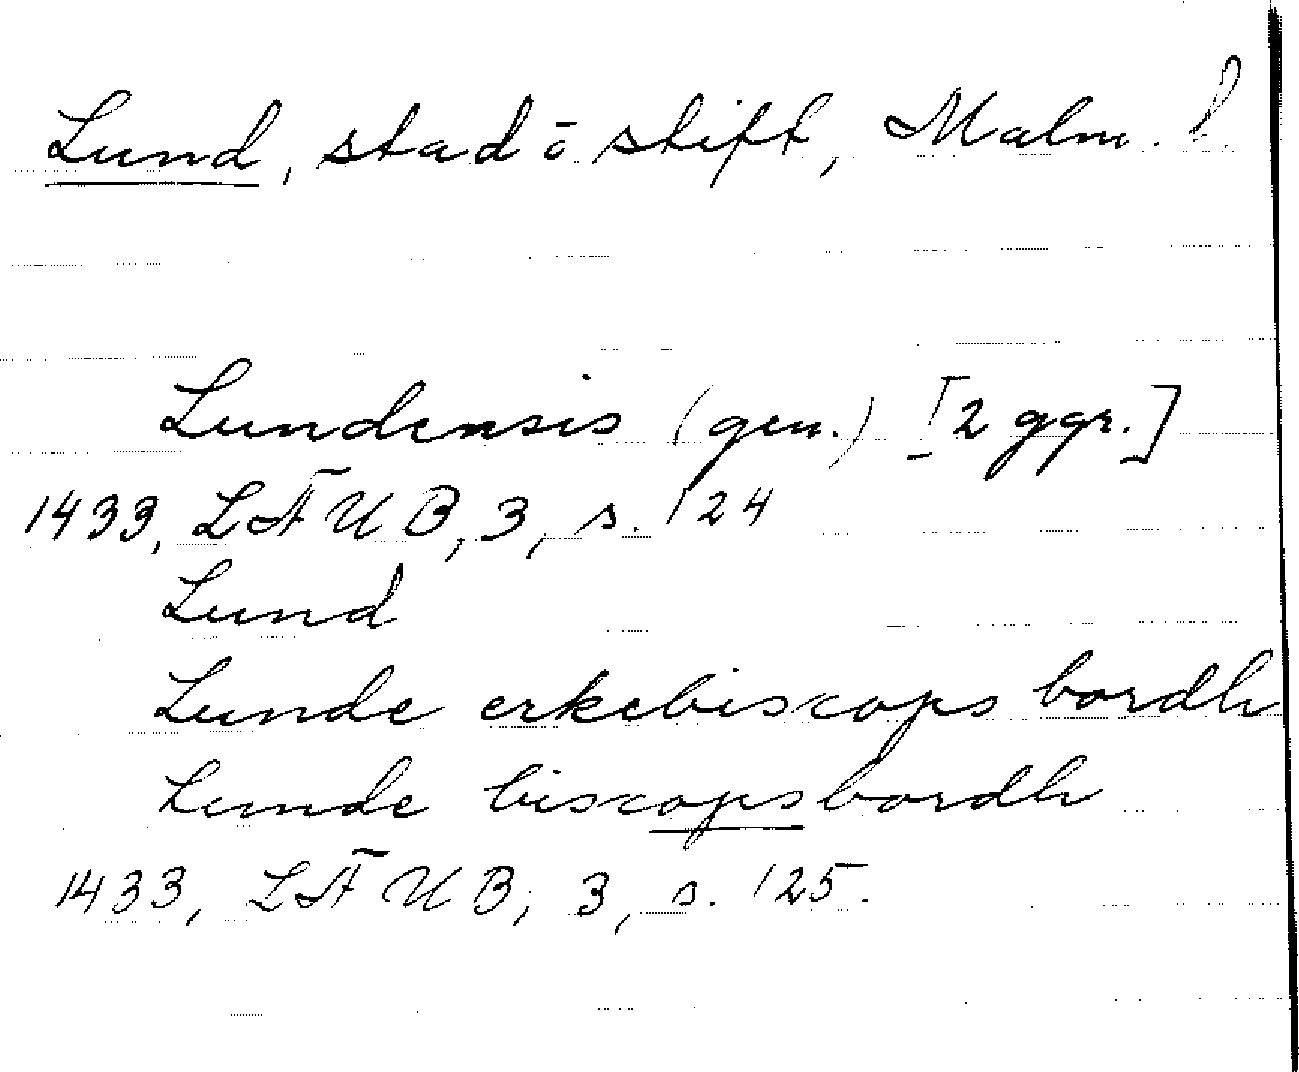 Lund, stad ō stift, Malm. l.
Lundensis (gen.) [2 ggr.]
1433, LÄUB, 3, s. 124
Lund
Lunde erkebiscops bordh
Lunde biscopsbordh
1433, LÄUB, 3, s. 125.